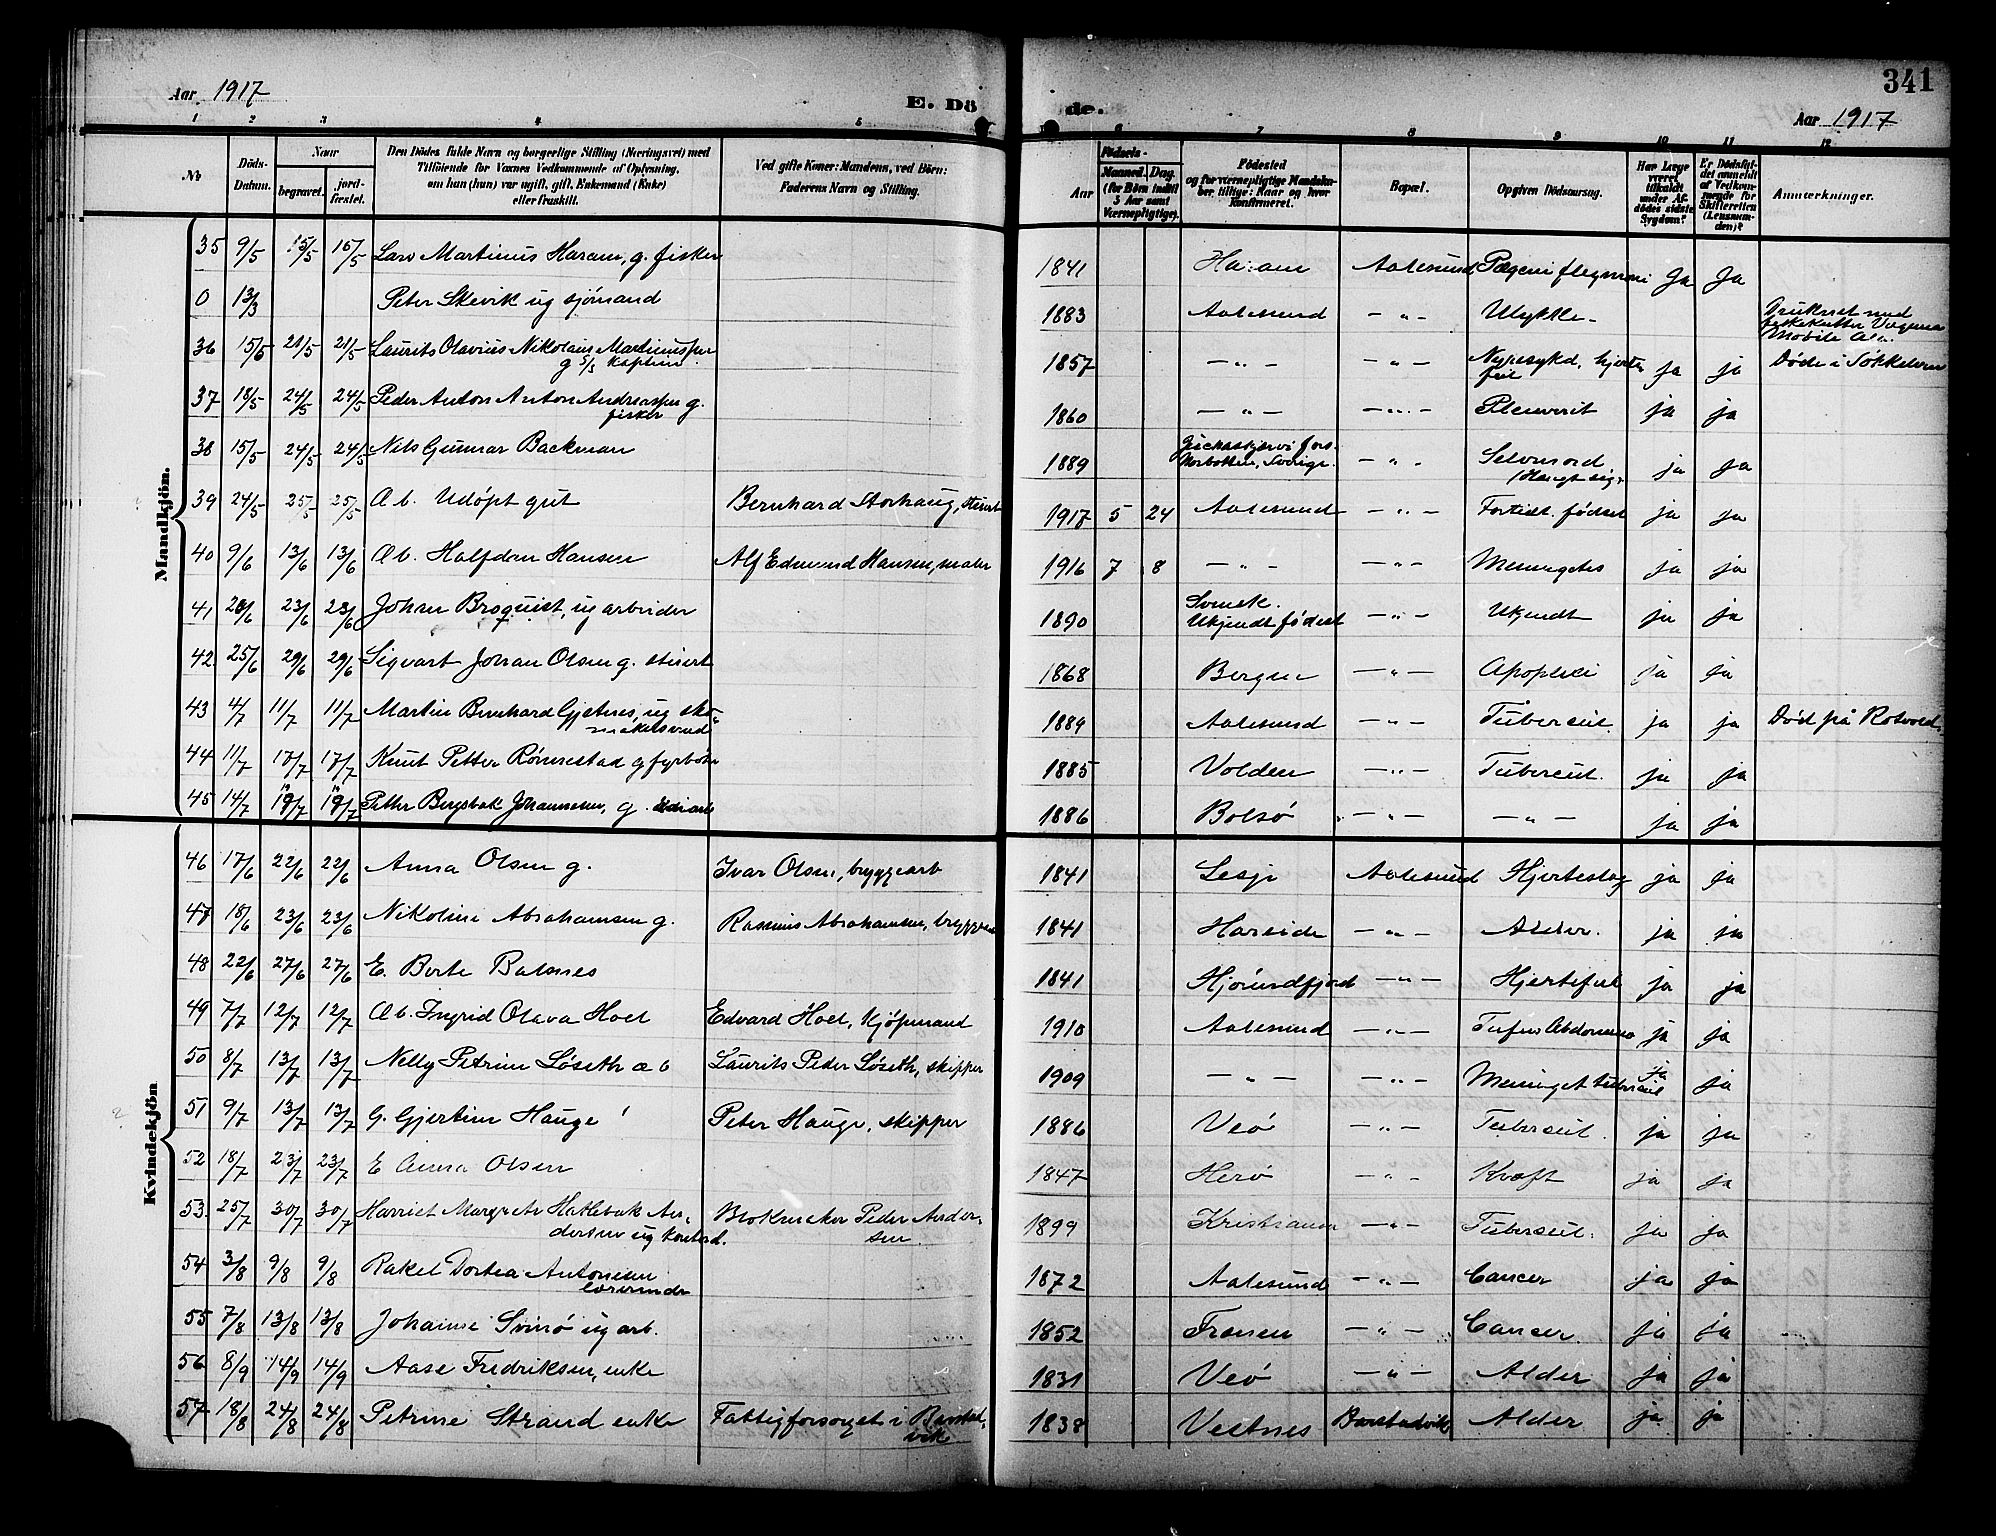 341
Aar 1917
E. Dö
de.
Aar 1917
1 2 3 4 5
6 7 8 9 10 11 12
No
Döds-Datum.
Naar
begravet.
jord-fæstet.
Den Dödes fulde Navn og borgerlige Stilling (Næringsvei) med
Tilföiende for Voxnes Vedkommende af Oplysning,
om han (hun) var ugift, gift, Enkemand (Enke)
eller fraskilt.
Ved gifte Koner: Mandens, ved Börn:
Faderens Navn og Stilling.
Födsels-
Aar
Maaned. Dag.
(for Börn indtil
5 Aar samt
Værnepligtige).
Födested
og for værnepligtige Mandska-
ber tillige: Naar og hvor
konfirmeret.
Bopæl.
Opgiven Dödsaarsag.
Har Læge
været
tilkaldt
under Af-
dödes sidste
Sygdom?
Er Dödsfal-
det anmeldt
af Vedkom-
mende for
Skifteretten
(Lensman-
den)?
Anmærkninger.
Mandkjön.
35 9/5 15/5 15/5 Lars Martinus Haram, g. fisker 1841 Haram Aalesund flegmoni Ja Ja
0 13/3 Peter Skevik ug sjömand 1883 Aalesund — " — Ulykke Druknet med
fiskekutter
36 15/5 21/5 21/5 Laurits Olavius Nikolaus
g 1857 — " — — " — hjerte-
feil ja ja Döde i
37 18/5 24/5 24/5 Peder Anton g.
fisker 1860 — " — — " — Plevrit ja ja
38 15/5 24/5 24/5 Nils Gunnar Backman 1889 Sverige. — " — Selvmord
(Hængt sig) ja ja
39 24/5 25/5 25/5 Æb. Udøpt gut Bernhard Storhaug, stuert 1917 5 24 Aalesund — " — Fortidl. födsel ja ja
40 9/6 13/6 13/6 Æb. Halfdan Hansen Alf Edmund Hansen, maler 1916 7 8 — " — — " — Meningetes ja ja
41 20/6 23/6 23/6 Johan Broquist, ug arbeider 1890 Svensk.
Ukjendt fødest — " — Ukjendt ja ja
42 25/6 29/6 29/6 Sigvart Johan Olsen g. stuert 1868 Bergen — " — Apoplexi ja ja
43 4/7 11/7 11/7 Martin Bernhard Gjetnes, ug sko-
makersvend 1889 Aalesund — " — Tubercul. ja ja Död på Rotvold.
44 11/7 17/7 17/7 Knut Petter Rönnestad g fyrböter 1885 Volden — " — Tubercul. ja ja
45 14/7 19/7 19/7 Petter Bergsbak Johannesen, g. 1886 Bolsø — " — — " — ja ja
Kvindekjön
46 17/6 22/6 22/6 Anna Olsen g. Ivar Olsen, bryggearb 1841 Lesje Aalesund Hjerteslag ja ja
47 18/6 23/6 23/6 Nikoline Abrahamsen g. Rasmus Abrahamsen, 1841 Hareide — " — Alder. ja ja
48 22/6 27/6 27/6 E. Berte Ratsnes 1841 Hjørundfjord — " — Hjertefeil ja ja
49 7/7 12/7 12/7 Æb. Ingrid Olava Hoel Edvard Hoel, Kjöpmand 1910 Aalesund — " — Tyfus ja ja
50 8/7 13/7 13/7 Nelly Petrine Løseth æ b Laurits Peder Løseth, skipper 1909 — " — — " — Meninget tubercul ja ja
51 9/7 13/7 13/7 G. Gjertine Hauge Peter Hauge, skipper 1886 Veö — " — Tubercul. ja ja
52 18/7 23/7 23/7 E Anna Olsen 1847 Herö — " — Kræft ja ja
53 25/7 30/7 30/7 Harriet Margrete Hatlebak An-
dersen ug kontord. Blokmaker Peder Ander-
sen 1899 Kristiania — " — Tubercul. ja ja
54 3/8 9/8 9/8 Rakel Dortea Antonsen
lærerinde 1872 Aalesund — " — Cancer ja ja
55 7/8 13/8 13/8 Johanne Svinö ug arb. 1852 Frænen — " — Cancer ja ja
56 8/9 14/9 14/9 Aase Fredriksen, enke 1831 Veö — " — Alder ja ja
57 18/8 24/8 24/8 Petrine Strand enke Fattigforsorget i Barstad-
vik 1838 Vestnes Barstadvik Alder ja ja